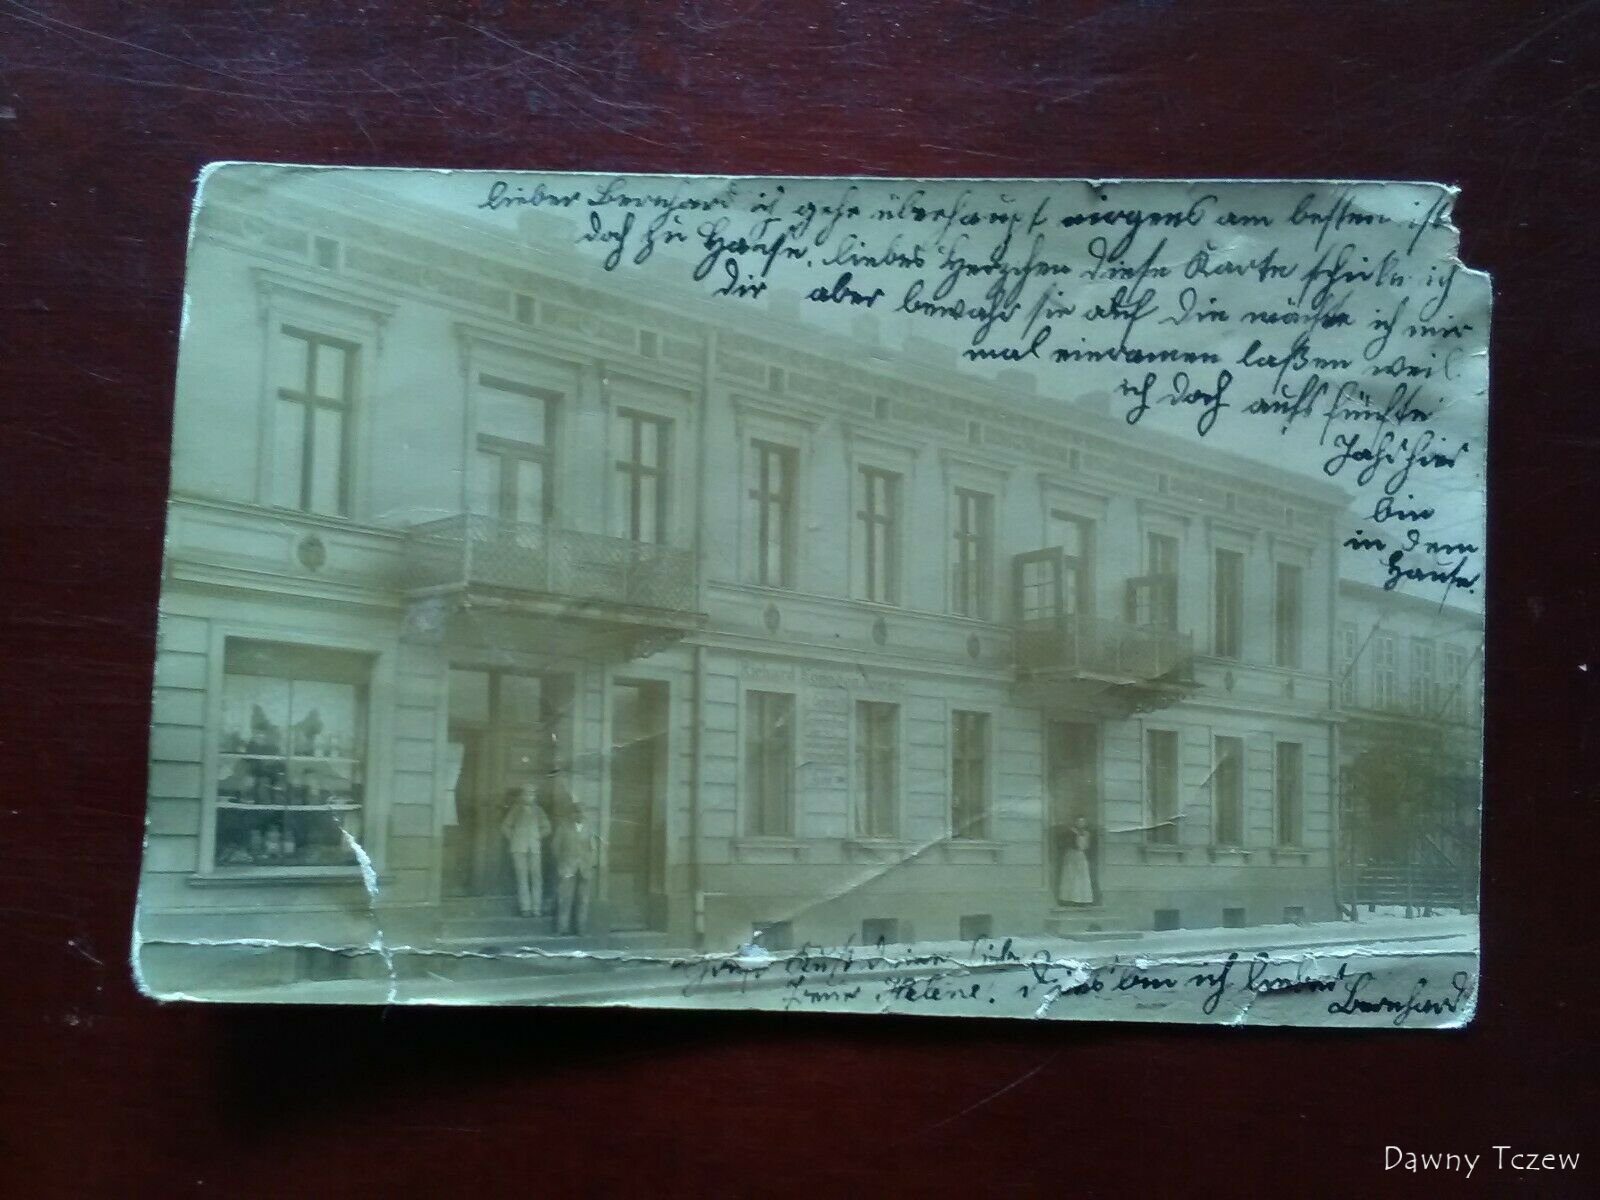 lieber Bernhard ich gehe überhaupt nirgens am besten ist
doch zu Hause. liebes Herzchen diese Karte schicke ich
dir aber bewahr sie auf die möchte ich mir
mal einramen laßen weil
ich doch aufs fünfte
Jahr hier
bin
in dem
Hause.
Richard
Gruß Kuß deine liebe
treue Helene. Dies bin ich lieber
Bernhard
Dawny Tczew